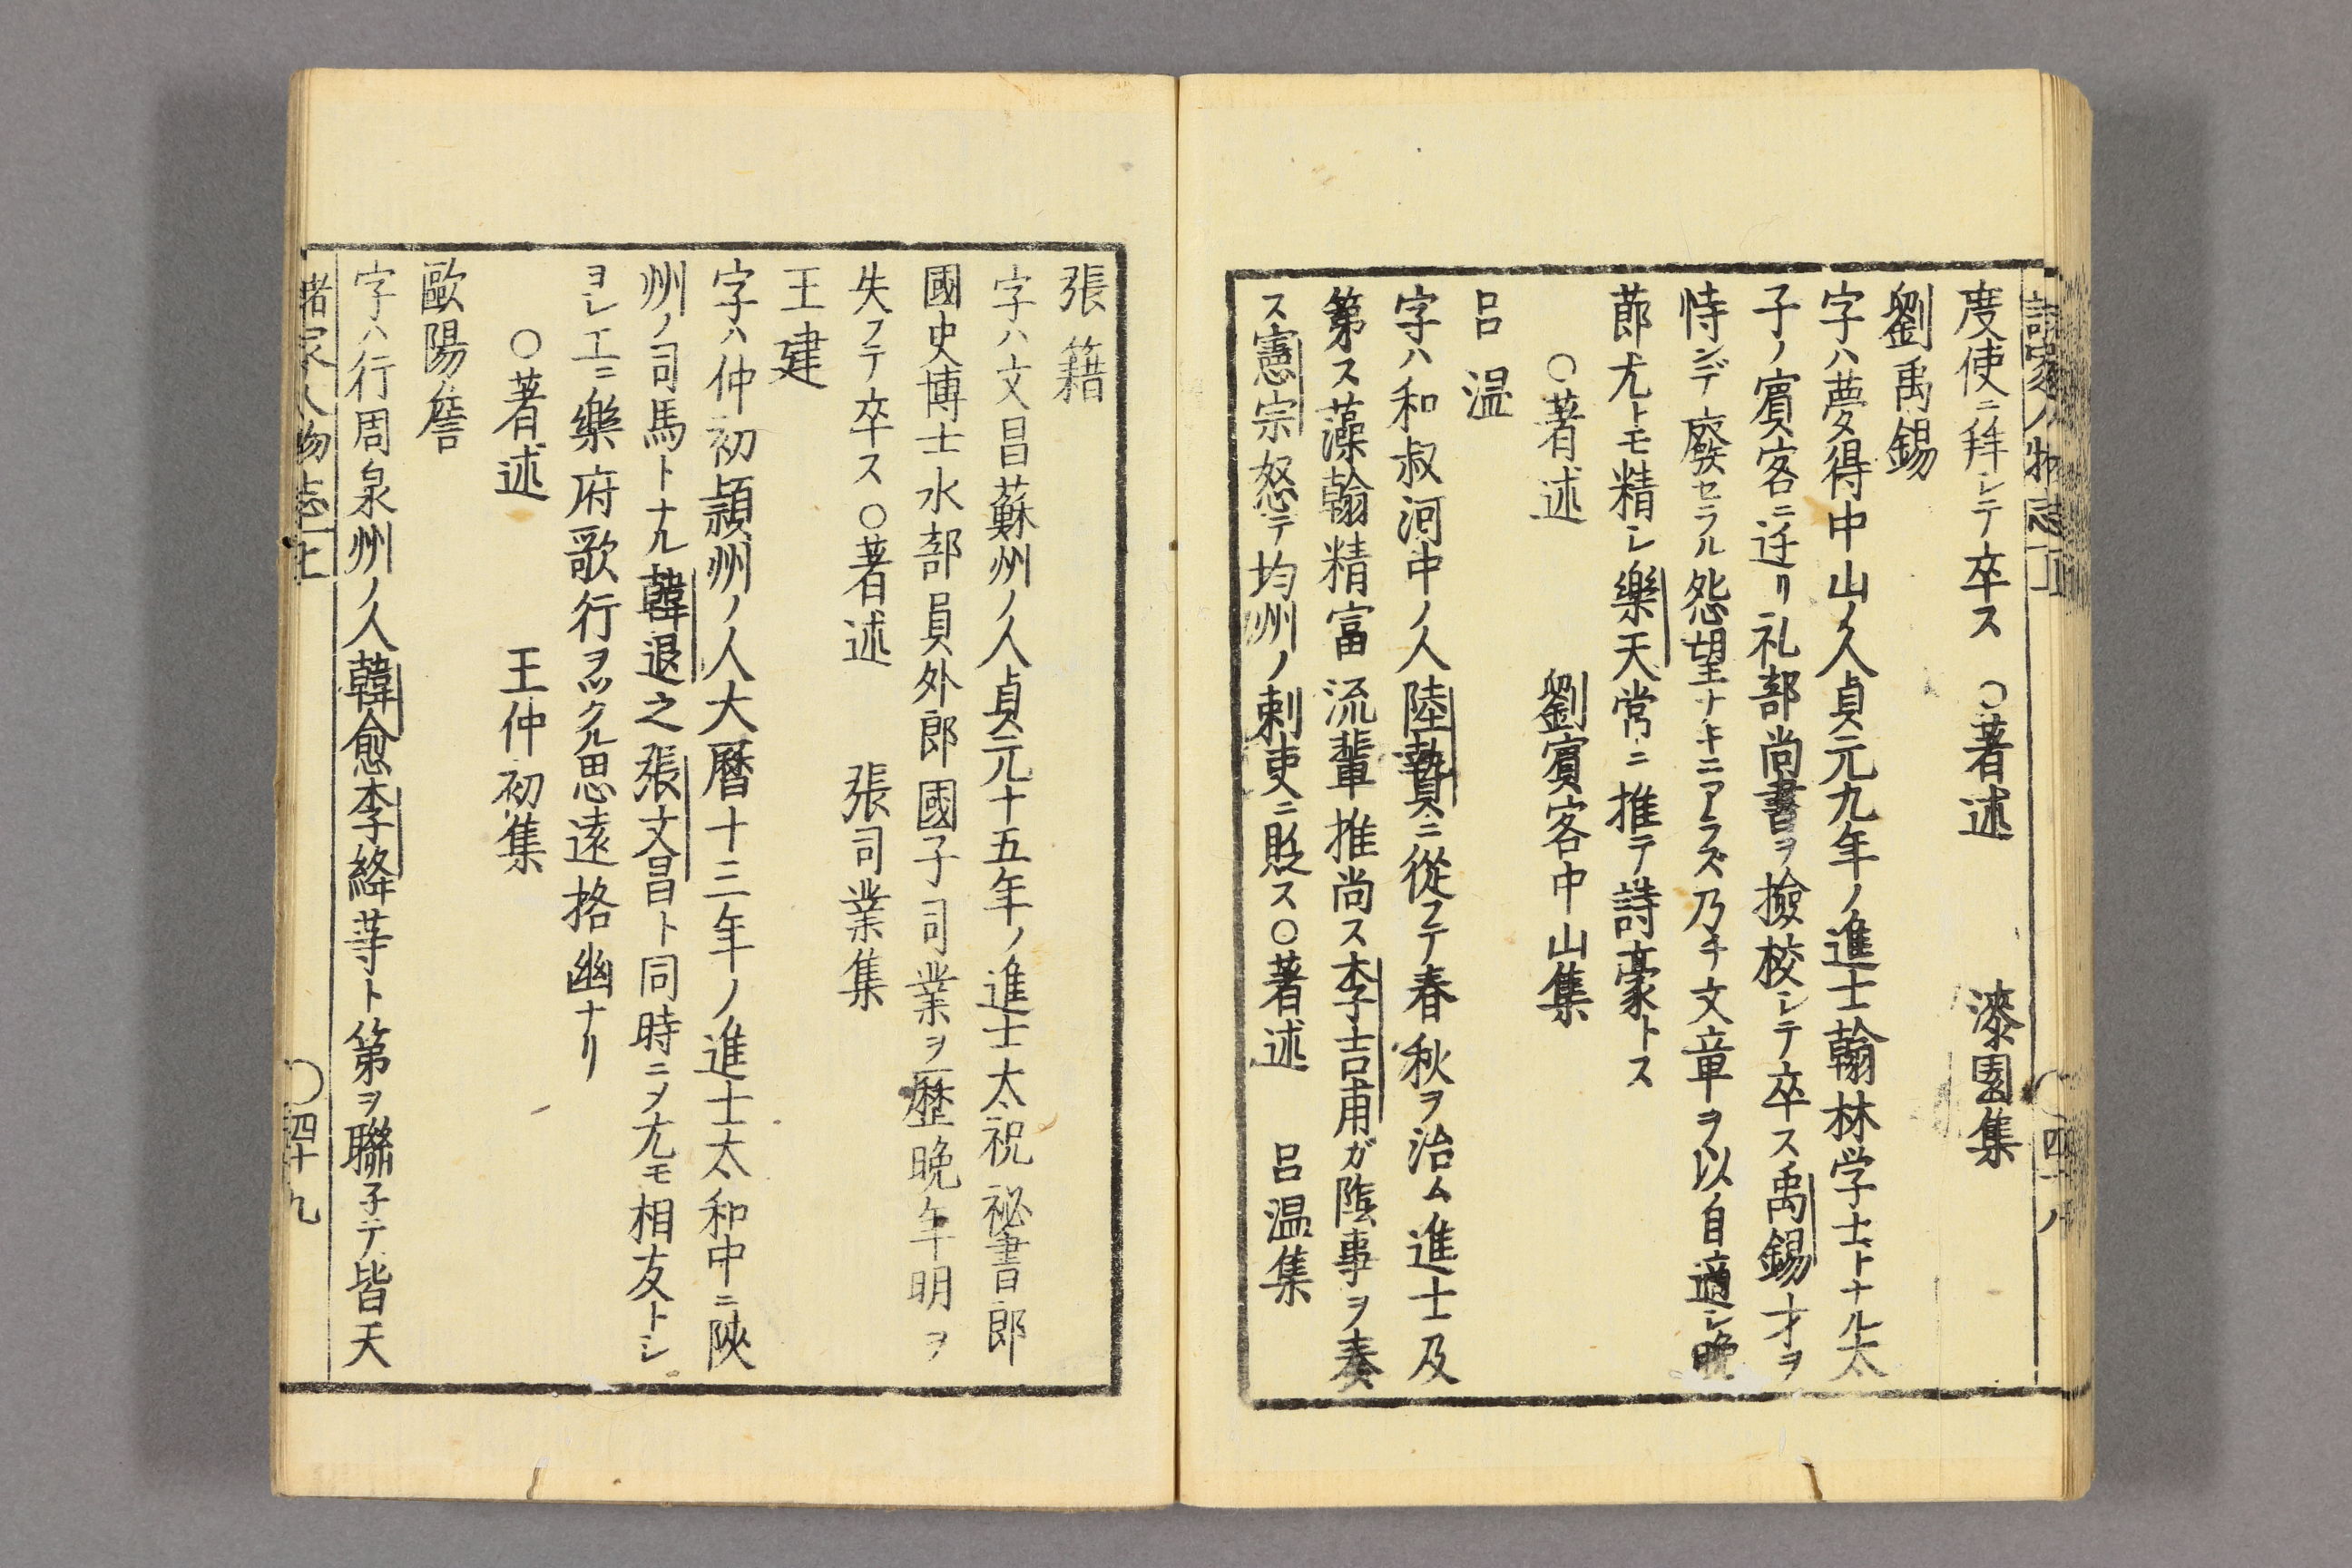 度使ニ拜シテ卒ス　○著述　漆園集
劉禹錫
字ハ夢得中山ノ人貞元九年ノ進士翰林学士トナル太
子ノ賓客ニ迁リ礼部尚書ヲ撿校シテ卒ス禹錫才ヲ
恃ンデ廢セラル怨望ナキニアラズ乃チ文章ヲ以自適シ晩
節尤トモ精シ樂天常ニ推テ詩豪トス
○著述　劉賓客中山集
呂温
字ハ和叔河中ノ人陸贄ニ從フテ春秋ヲ治ム進士及
第ス藻翰精富流輩推尚ス李吉甫ガ陰事ヲ奏
ス憲宗怒テ均州ノ刺吏ニ貶ス○著述　呂温集
張籍
字ハ文昌蘇州ノ人貞元十五年ノ進士太祝秘書郎
國史博士水部員外郎國子司業ヲ歴晩年明ヲ
失フテ卒ス○著述　張司業集
王建
字ハ仲初頴州ノ人大暦十三年ノ進士太和中ニ陜
州ノ司馬トナル韓退之張文昌ト同時ニ〆尤モ相友トシ
ヨシ工ニ樂府歌行ヲツクル思遠格幽ナリ
○著述　王仲初集
歐陽詹
字ハ行周泉州ノ人韓愈李絳等ト第ヲ聯子テ皆天
諸家人物志上　○四十九